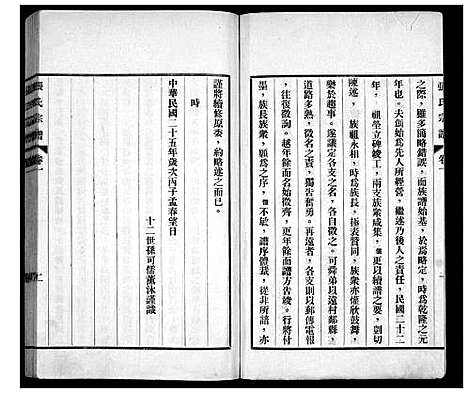 張氏宗譜 卷一
之際，雖多滴略錯誤，而族譜始基，於焉略定，時爲乾隆之元
年也。夫創始爲先人所經營，繼述乃後人之責任，民國二十二
年，祖塋立碑竣工，南支族衆咸集，僅更以續譜之要，剴切
陳述，族祖永相，時爲族長，極表贊同，族衆亦懽欣鼓舞，
樂於趨事。遂議定各支之名，各自徵之。可舜弟以遠村鄰縣，
道路多艱，徵名之責，獨告奮勇。再遠者，各支則以郵傳電報
，往復徵詢。越年餘而名始徵齊，更年餘而譜方告竣。行將付
墨，族長族衆，願爲之序，僅不敏，譜序體裁，從非所諳，亦
謹將續修原委，約略述之而已。
時
中華民國二十五年歲次丙子孟春望日
十二世孫可儒薰沐謹識
張氏宗譜 卷一